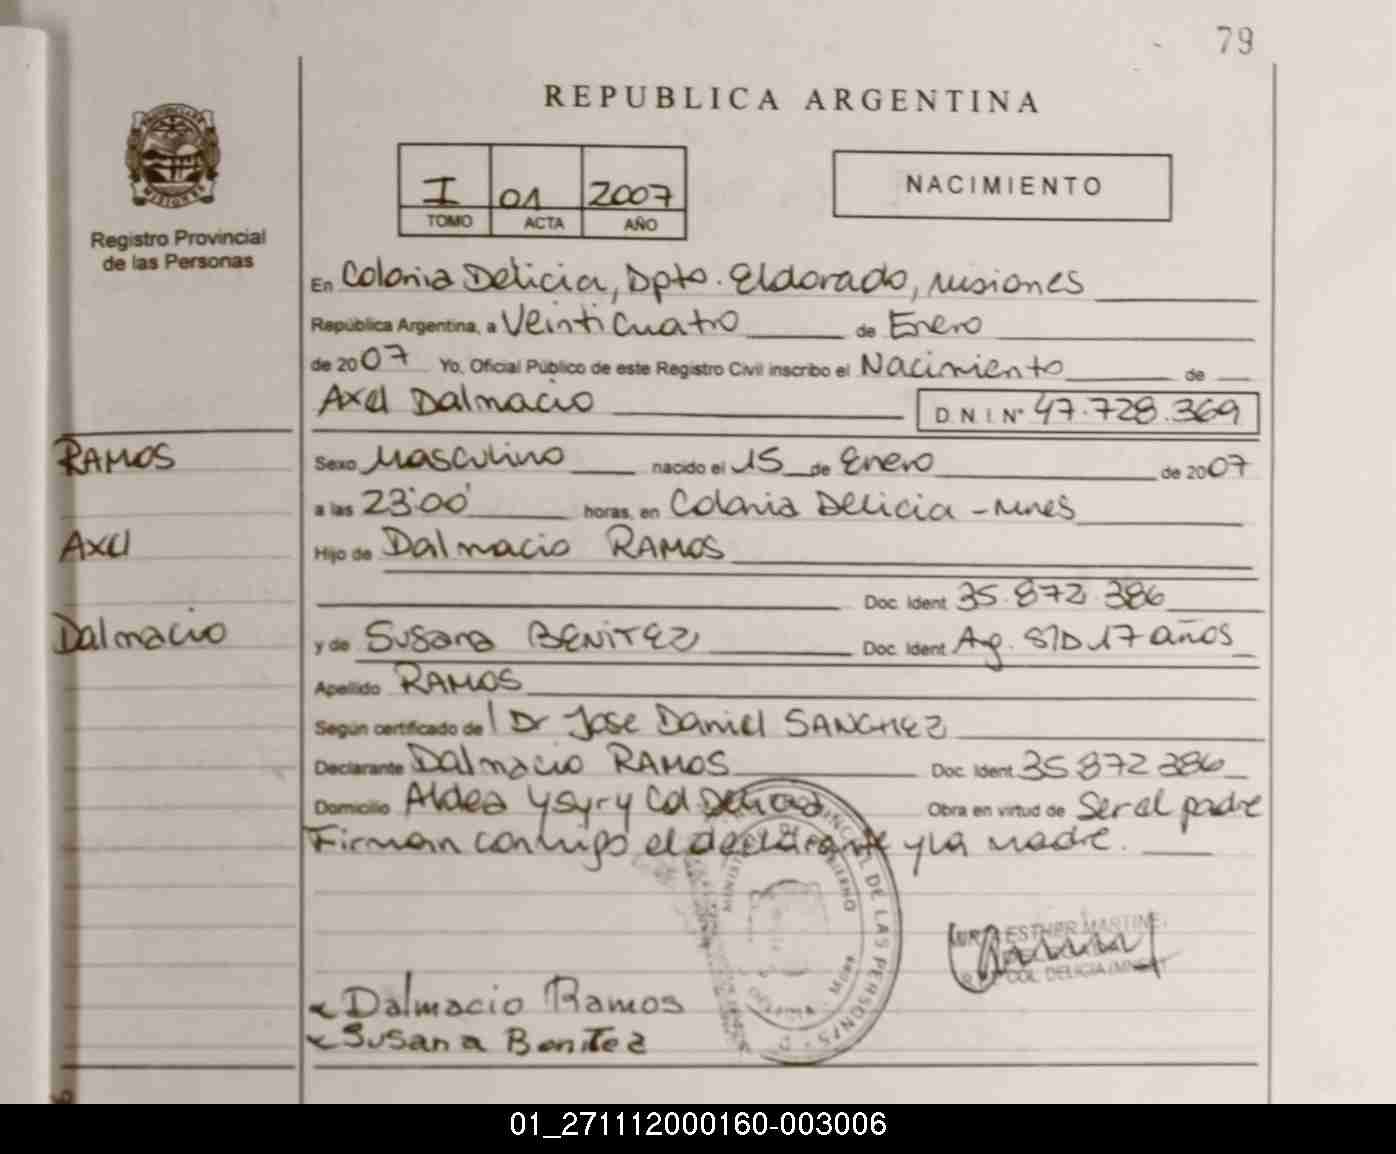 79
REPUBLICA ARGENTINA
I 01 2007
TOMO ACTA AÑO
NACIMIENTO
Registro Provincial
de las Personas
En Colonia Delicia, Dpto. Eldorado, Misiones
República Argentina, a Veinticuatro de Enero
de 2007 Yo, Oficial Público de este Registro Civil inscribo el Nacimiento de
Axel Dalmacio D.N.I. N° 47.728.369
RAMOS
Axel
Dalmacio
Sexo Masculino nacido el 15 de Enero de 2007
a las 23:00 horas, en Colonia Delicia - Mnes
Hijo de Dalmacio RAMOS
Doc. Ident 35.872.386
y de Susana BENITEZ Doc. Ident Ag. S/D 17 años
Apellido RAMOS
Según certificado de Dr Jose Daniel SANCHEZ
Declarante Dalmacio RAMOS Doc. Ident 35872386
Domicilio Aldea Ysyry Col Delicia Obra en virtud de Ser el padre
Firman conmigo el declarante y la madre.
DE LAS PERSONAS
ESTHER MARTINE
COL DELICIA
Dalmacio Ramos
Susana Benitez
01_271112000160-003006